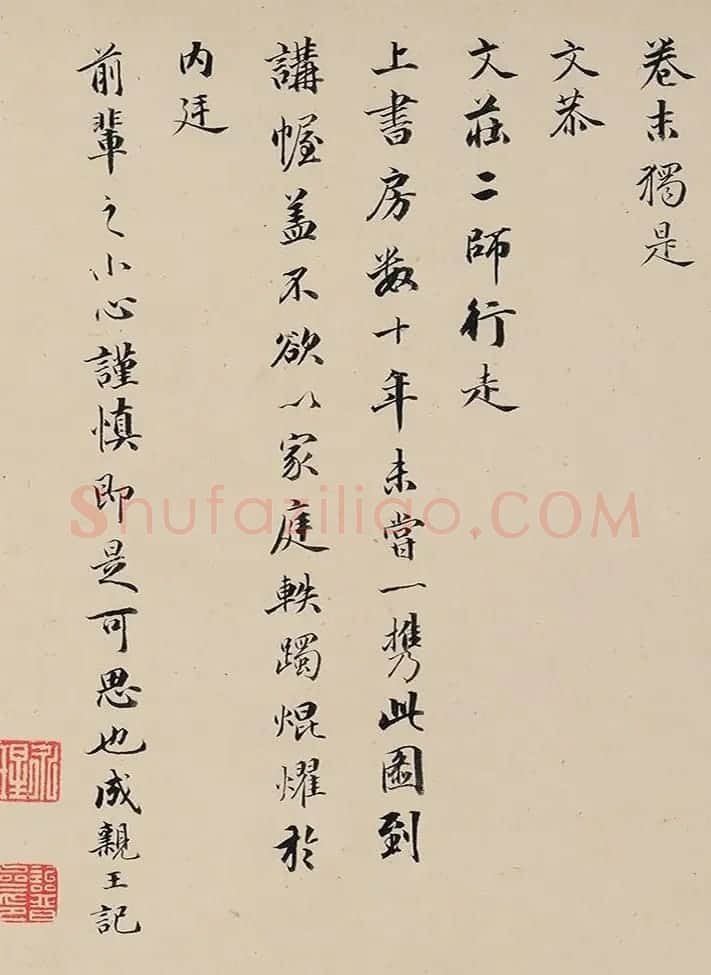 卷末獨是
文恭
文莊二師行走
上書房数十年未嘗一携此圖到
講幄盖不欲以家庭軼躅焜燿於
内廷
前輩之小心謹慎即是可思也成親王記
永瑆
詒晉齋印
Shufaziliao.COM